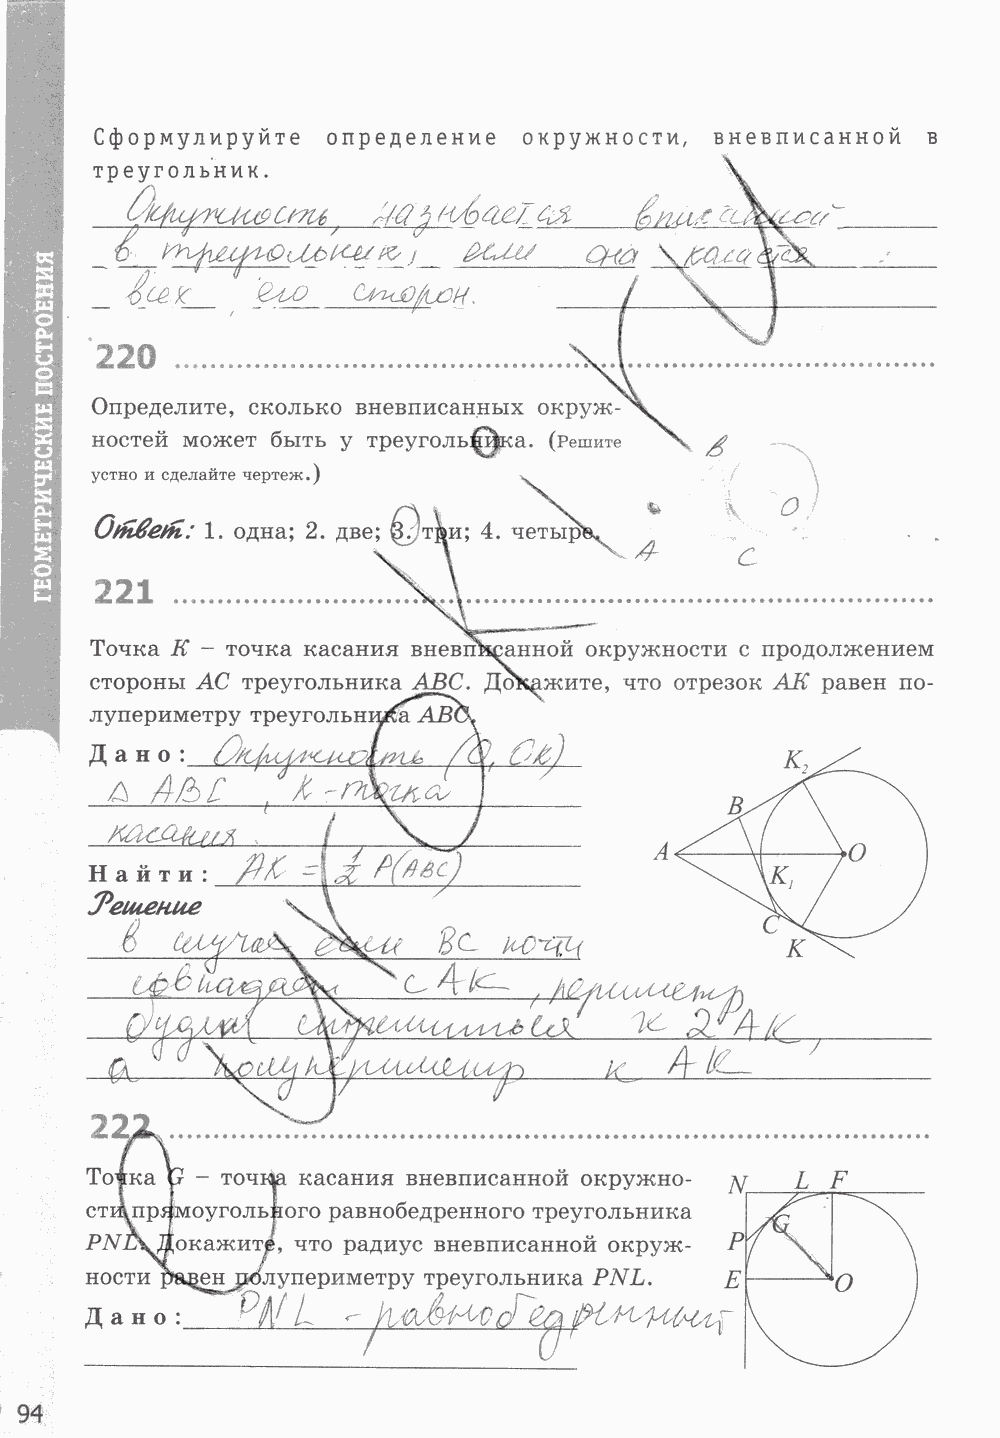 Сформулируйте определение окружности, вневписанной в
треугольник.
Окружность, называется вписанной
в треугольник, если она касается
всех его сторон.
220
Определите, сколько вневписанных окруж-
ностей может быть у треугольника. (Решите
устно и сделайте чертеж.)
Ответ: 1. одна; 2. две; 3. три; 4. четыре.
B
O
A
C
221
Точка K – точка касания вневписанной окружности с продолжением
стороны AC треугольника ABC. Докажите, что отрезок AK равен по-
лупериметру треугольника ABC.
Дано: Окружность (O, OK)
Δ ABC, K-точка
касания.
Найти: AK = 1/2 P(ABC)
Решение
в случае если BC почти
совпадает с AK, периметр
будет стремиться к 2 AK,
а полупериметр к AK
K₂
B
A
O
K₁
C
K
222
Точка G – точка касания вневписанной окружно-
сти прямоугольного равнобедренного треугольника
PNL. Докажите, что радиус вневписанной окруж-
ности равен полупериметру треугольника PNL.
Дано: PNL - равнобедренный
N L F
G
P
E O
ГЕОМЕТРИЧЕСКИЕ ПОСТРОЕНИЯ
94